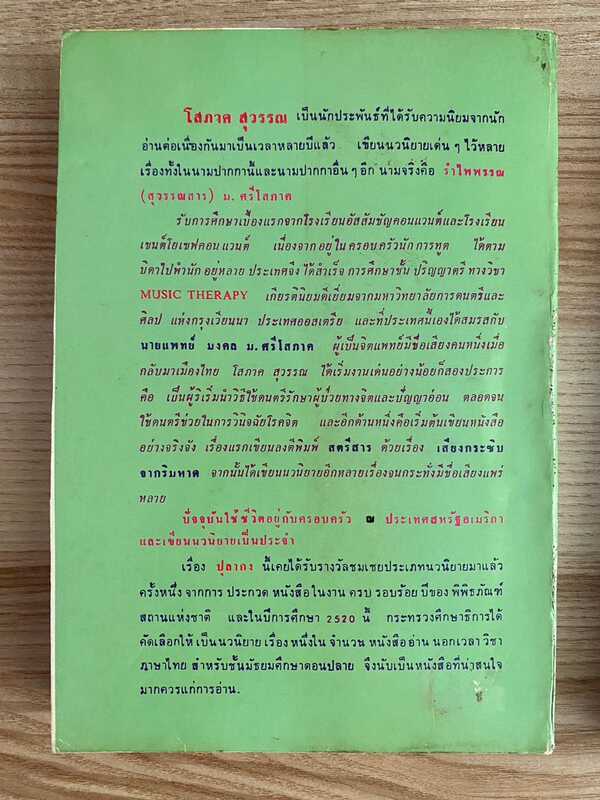 โสภาค สุวรรณ เป็นนักประพันธ์ที่ได้รับความนิยมจากนัก
อ่านต่อเนื่องกันมาเป็นเวลาหลายปีแล้ว เขียนนวนิยายเด่น ๆ ไว้หลาย
เรื่องทั้งในนามปากกานี้และนามปากกาอื่น ๆ อีก นามจริงคือ รำไพพรรณ
(สุวรรณสาร) ม. ศรีโสภาค
รับการศึกษาเบื้องแรกจากโรงเรียนอัสสัมชัญคอนแวนต์และโรงเรียน
เซนต์โยเซฟคอนแวนต์ เนื่องจากอยู่ในครอบครัวนักการทูต ได้ตาม
บิดาไปพำนักอยู่หลายประเทศจึงได้สำเร็จการศึกษาขั้นปริญญาตรีทางวิชา
MUSIC THERAPY เกียรตินิยมดีเยี่ยมจากมหาวิทยาลัยการดนตรีและ
ศิลป แห่งกรุงเวียนนา ประเทศออสเตรีย และที่ประเทศนี้เองได้สมรสกับ
นายแพทย์ มงคล ม. ศรีโสภาค ผู้เป็นจิตแพทย์มีชื่อเสียงคนหนึ่งเมื่อ
กลับมาเมืองไทย โสภาค สุวรรณ ได้เริ่มงานเด่นอย่างน้อยก็สองประการ
คือ เป็นผู้ริเริ่มนำวิธีใช้ดนตรีรักษาผู้ป่วยทางจิตและปัญญาอ่อน ตลอดจน
ใช้ดนตรีช่วยในการวินิจฉัยโรคจิต และอีกด้านหนึ่งคือเริ่มต้นเขียนหนังสือ
อย่างจริงจัง เรื่องแรกเขียนลงตีพิมพ์ สตรีสาร ด้วยเรื่อง เสียงกระซิบ
จากริมหาด จากนั้นได้เขียนนวนิยายอีกหลายเรื่องจนกระทั่งมีชื่อเสียงแพร่
หลาย
ปัจจุบันใช้ชีวิตอยู่กับครอบครัว ณ ประเทศสหรัฐอเมริกา
และเขียนนวนิยายเป็นประจำ
เรื่อง ปุลากง นี้เคยได้รับรางวัลชมเชยประเภทนวนิยายมาแล้ว
ครั้งหนึ่ง จากการประกวดหนังสือในงานครบรอบร้อยปีของพิพิธภัณฑ์
สถานแห่งชาติ และในปีการศึกษา 2520 นี้ กระทรวงศึกษาธิการได้
คัดเลือกให้เป็นนวนิยายเรื่องหนึ่งในจำนวนหนังสืออ่านนอกเวลาวิชา
ภาษาไทย สำหรับชั้นมัธยมศึกษาตอนปลาย จึงนับเป็นหนังสือที่น่าสนใจ
มากควรแก่การอ่าน.